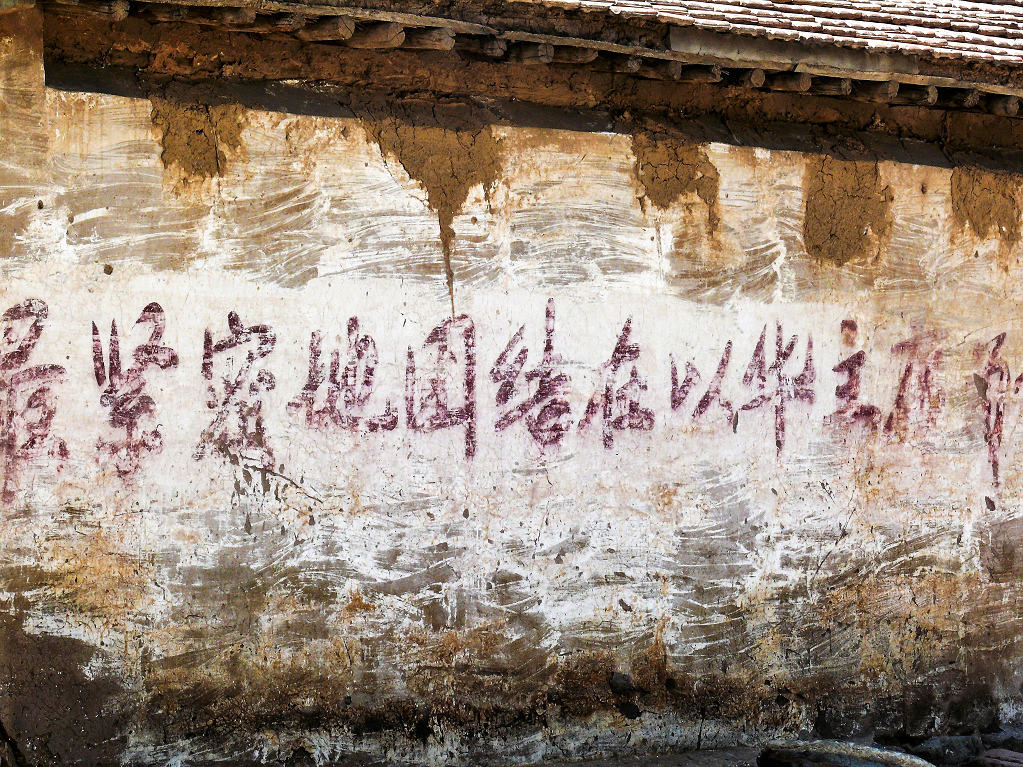 最紧密地团结在以华主席